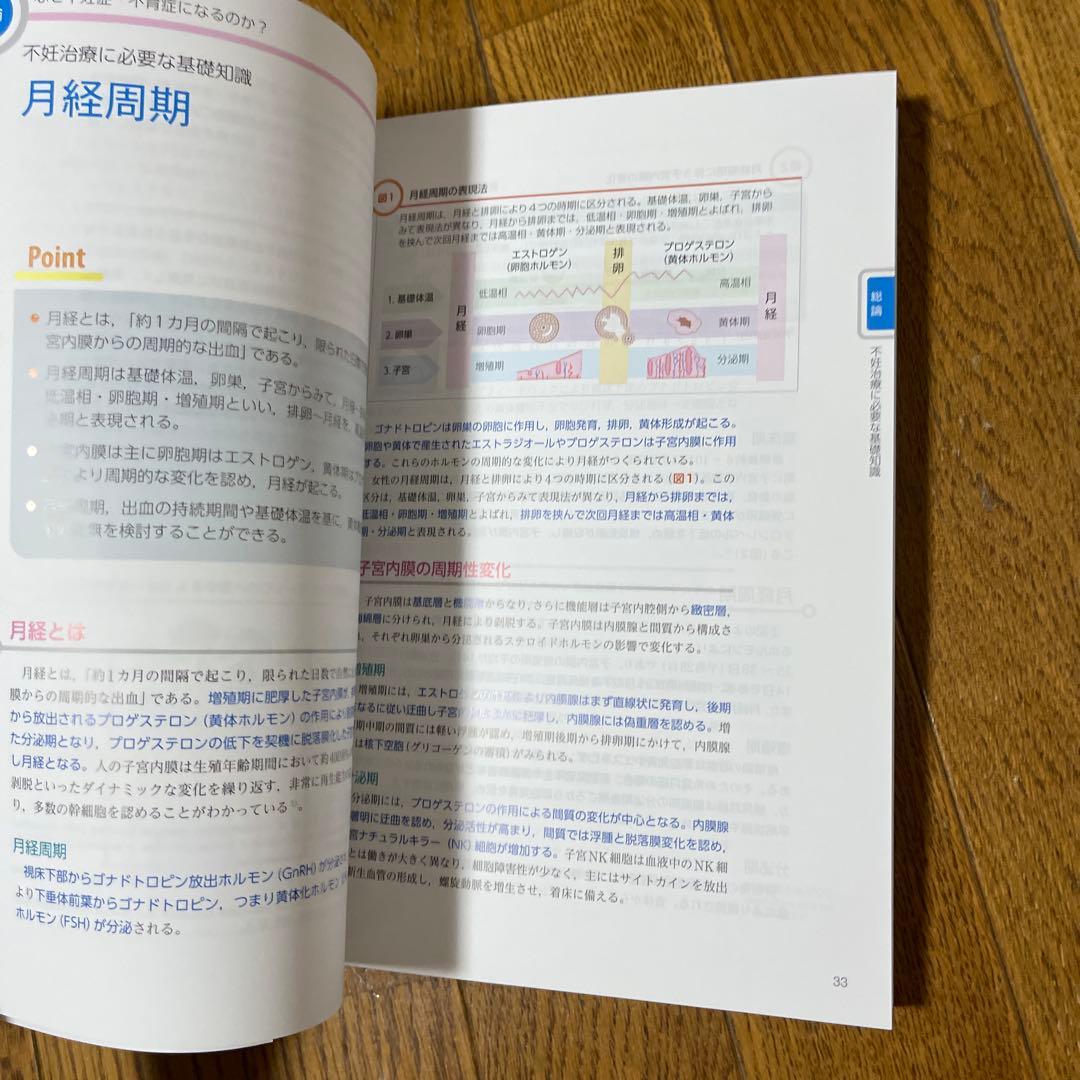 不育症になるのか？
不妊治療に必要な基礎知識
月経周期
Point
月経とは，「約1カ月の間隔で起こり，限られた日数
宮内膜からの周期的な出血」である。
月経周期は基礎体温，卵巣，子宮からみて，月経
低温相・卵胞期・増殖期といい，排卵－月経を，
期と表現される。
内膜は主に卵胞期はエストロゲン，黄体期はプロ
より周期的な変化を認め，月経が起こる。
周期，出血の持続期間や基礎体温を基に，
を検討することができる。
月経とは
月経とは，「約1カ月の間隔で起こり，限られた日数で自然に
膜からの周期的な出血」である。増殖期に肥厚した子宮内膜が，
から放出されるプロゲステロン（黄体ホルモン）の作用により
た分泌期となり，プロゲステロンの低下を契機に脱落膜化した
し月経となる。人の子宮内膜は生殖年齢期間において約400
剥脱といったダイナミックな変化を繰り返す，非常に再生
り，多数の幹細胞を認めることがわかっている
月経周期
視床下部からゴナドトロピン放出ホルモン（GnRH）が分泌
より下垂体前葉からゴナドトロピン，つまり黄体化ホルモン
ホルモン（FSH）が分泌される。
図1 月経周期の表現法
月経周期は，月経と排卵により4つの時期に区分される。基礎体温，卵巣，子宮から
みて表現法が異なり，月経から排卵までは，低温相・卵胞期・増殖期とよばれ，排卵
を挟んで次回月経までは高温相・黄体期・分泌期と表現される。
エストロゲン
（卵胞ホルモン）
排卵
プロゲステロン
（黄体ホルモン）
月経
1. 基礎体温
低温相
高温相
月経
2. 卵巣
卵胞期
黄体期
3. 子宮
増殖期
分泌期
ゴナドトロピンは卵巣の卵胞に作用し，卵胞発育，排卵，黄体形成が起こる。
卵胞や黄体で産生されたエストラジオールやプロゲステロンは子宮内膜に作用
する。これらのホルモンの周期的な変化により月経がつくられている。
女性の月経周期は，月経と排卵により4つの時期に区分される（図1）。この
区分は，基礎体温，卵巣，子宮からみて表現法が異なり，月経から排卵までは，
低温相・卵胞期・増殖期とよばれ，排卵を挟んで次回月経までは高温相・黄体
期・分泌期と表現される。
子宮内膜の周期性変化
子宮内膜は基底層と機能層からなり，さらに機能層は子宮内腔側から緻密層，
海綿層に分けられ，月経により剥脱する。子宮内膜は内膜腺と間質から構成さ
れ，それぞれ卵巣から分泌されるステロイドホルモンの影響で変化する。
増殖期
増殖期には，エストロゲンの作用により内膜腺はまず直線状に発育し，後期
なるに従い迂曲し子宮内膜は肥厚し，内膜腺には偽重層を認める。増
期中期の間質には軽い浮腫が認め，増殖期後期から排卵期にかけて，内膜腺
は核下空胞（グリコーゲンの蓄積）がみられる。
分泌期
分泌期には，プロゲステロンの作用による間質の変化が中心となる。内膜腺
層明に迂曲を認め，分泌活性が高まり，間質では浮腫と脱落膜変化を認め，
宮ナチュラルキラー（NK）細胞が増加する。子宮NK細胞は血液中のNK細
とは働きが大きく異なり，細胞障害性が少なく，主にはサイトカインを放出
新生血管の形成し，螺旋動脈を増生させ，着床に備える。
総論
不妊治療に必要な基礎知識
33